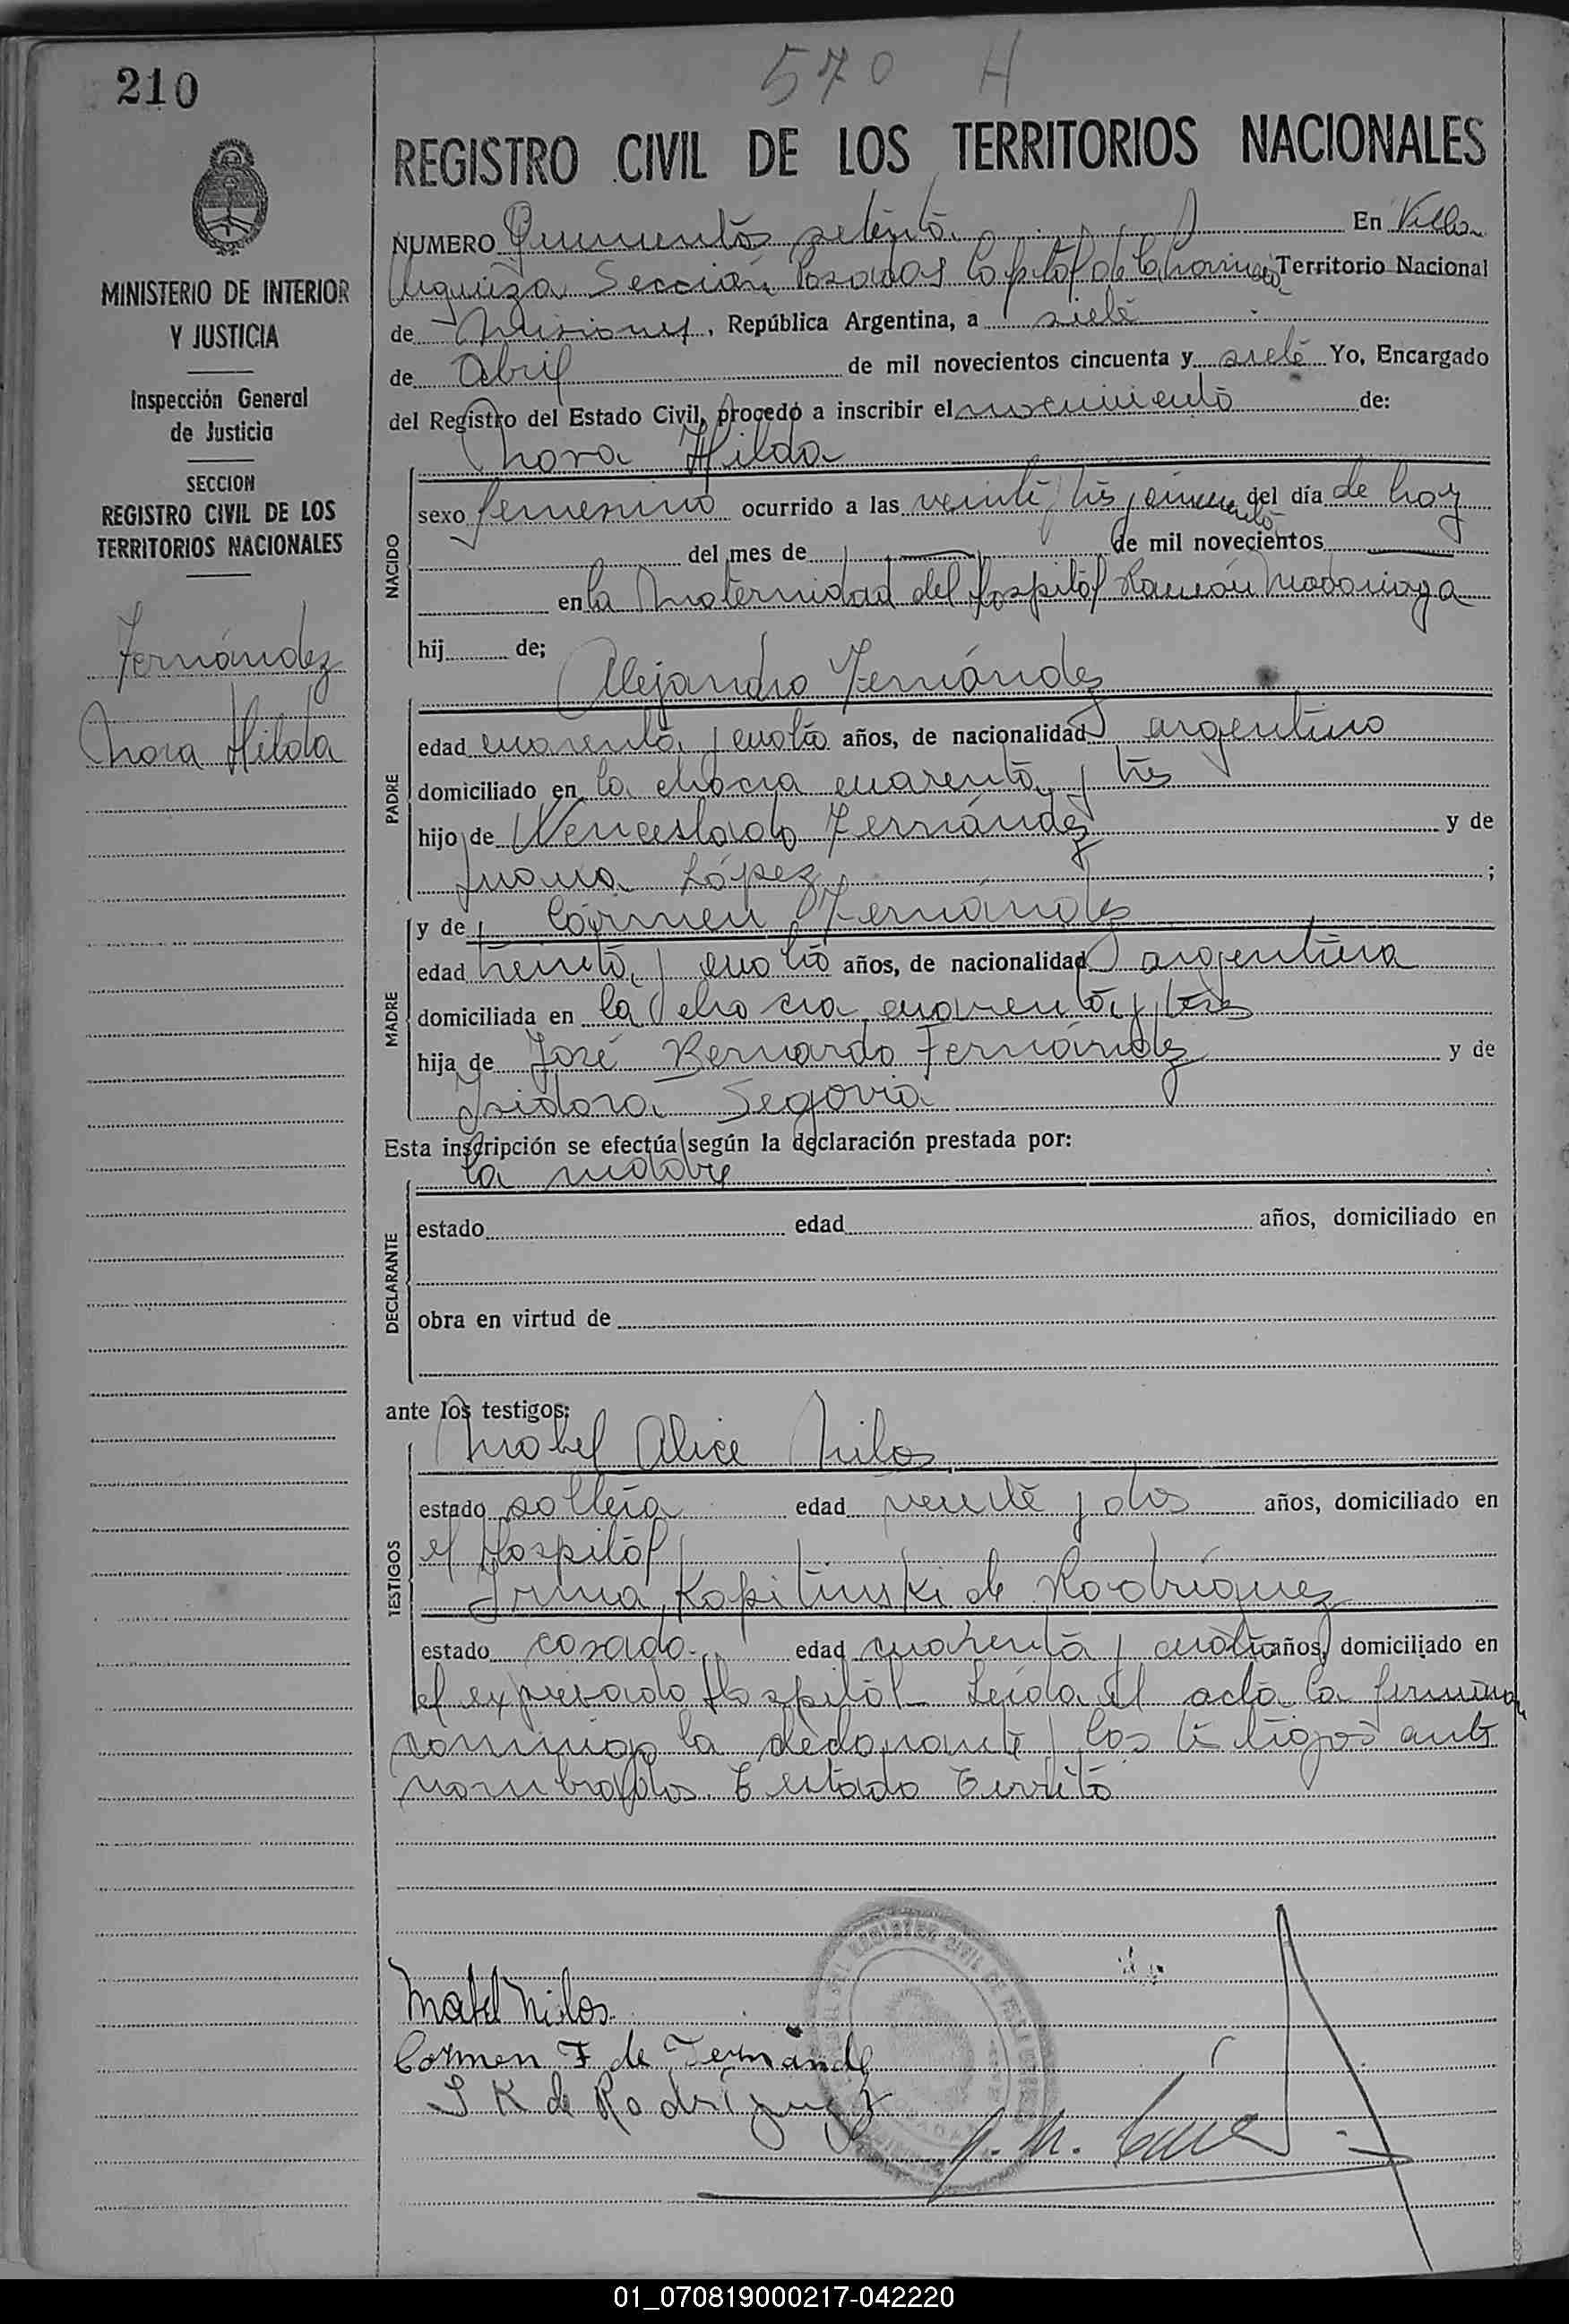 210
570 H
REGISTRO CIVIL DE LOS TERRITORIOS NACIONALES
MINISTERIO DE INTERIOR
Y JUSTICIA
Inspección General
de Justicia
SECCION
REGISTRO CIVIL DE LOS
TERRITORIOS NACIONALES
Fernández
Nora Hilda
NUMERO Quinientos setenta En Villa
Urquiza Sección Posadas Capital de la Territorio Nacional
de Misiones, República Argentina, a siete
de Abril de mil novecientos cincuenta y siete Yo, Encargado
del Registro del Estado Civil, procedo a inscribir el nacimiento de:
Nora Hilda
NACIDO
sexo femenino ocurrido a las veinte y tres y cincuenta del día de hoy
del mes de de mil novecientos
en la Maternidad del Hospital Ramón Madariaga
hij de;
Alejandro Fernández
PADRE
edad cuarenta y cuatro años, de nacionalidad argentino
domiciliado en la chacra cuarenta y tres
hijo de Wenceslado Fernández y de
Juana López ;
MADRE
y de Cármen Fernández
edad treinta y cuatro años, de nacionalidad argentina
domiciliada en la chacra cuarenta y tres
hija de José Bernardo Fernández y de
Isidora Segovia
Esta inscripción se efectúa según la declaración prestada por:
la madre
DECLARANTE
estado edad años, domiciliado en
obra en virtud de
ante los testigos:
Mabel Alice Nilos
TESTIGOS
estado soltera edad veinte y dos años, domiciliado en
el Hospital
Irma Kapitinski de Rodríguez
estado casada edad cuarenta y cuatro años, domiciliado en
el expresado Hospital Leída el acta la firman
conmigo la declarante y los testigos ante
nombrados. E
Mabel Nilos
Carmen F de Fernánde
I K de Rodríguez
01_070819000217-042220